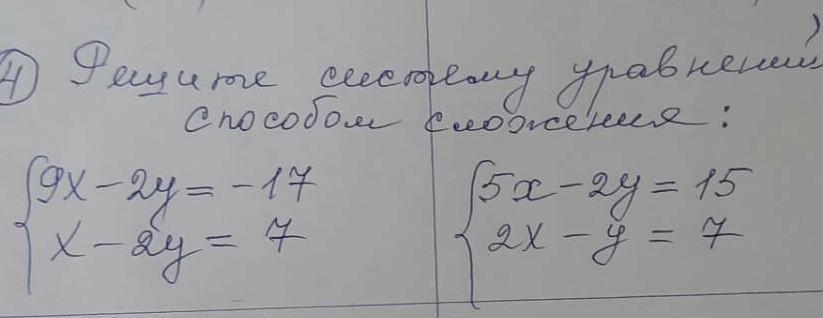 4 Решите систему уравнений
способом сложения:
9x - 2y = -17
x - 2y = 7
5x - 2y = 15
2x - y = 7